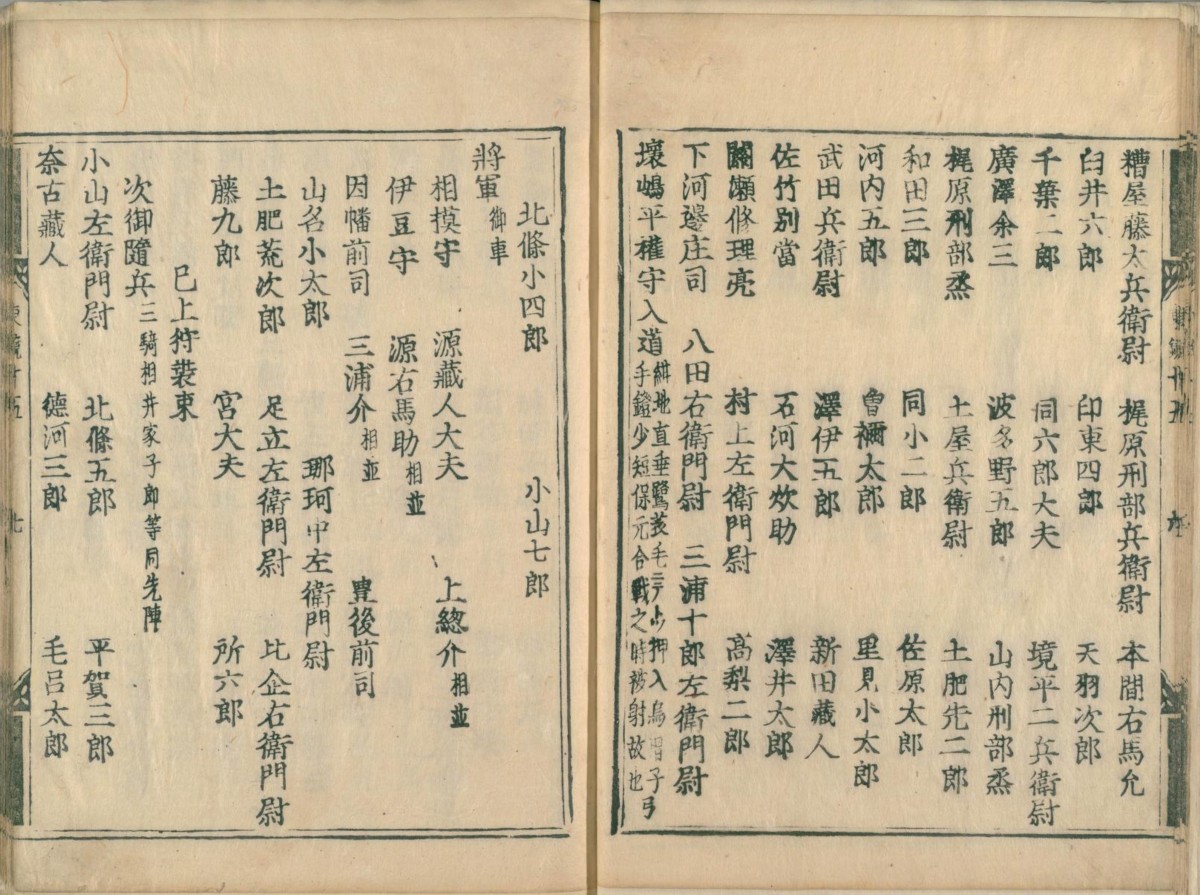 糟屋藤太兵衛尉　梶原刑部兵衛尉　本間右馬允
臼井六郎　印東四郎　天羽次郎
千葉二郎　同六郎大夫　境平二兵衛尉
廣澤余三　波多野五郎　山内刑部烝
梶原刑部烝　土屋兵衛尉　土肥先二郎
和田三郎　同小二郎　佐原太郎
河内五郎　曽祢太郎　里見小太郎
武田兵衛尉　澤伊五郎　新田藏人
佐竹別當　石河大炊助　澤井太郎
關瀬修理亮　村上左衛門尉　高梨二郎
下河邊庄司　八田右衛門尉　三浦十郎左衛門尉
壞嶋平權守入道　紺地直垂鷺蓑毛ニテ押入烏帽子弓
手鐙少短保元合戰之時被射故也
北條小四郎　小山七郎
將軍　御車
相摸守　源藏人大夫　上總介　相並
伊豆守　源右馬助　相並
因幡前司　三浦介　相並　豊後前司
山名小太郎　那珂中左衛門尉
土肥荒次郎　足立左衛門尉　比企右衛門尉
藤九郎　宮大夫　所六郎
已上狩裝束
次御隨兵　三騎相并家子郎等同先陣
小山左衛門尉　北條五郎　平賀三郎
奈古藏人　德河三郎　毛呂太郎